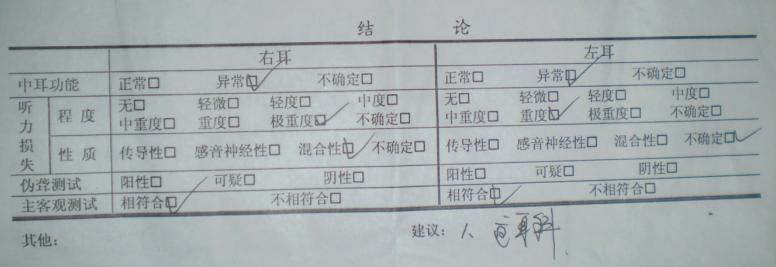 结 论
右耳 左耳
中耳功能 正常□ 异常☑ 不确定□ 正常□ 异常☑ 不确定□
听力损失 程度 无□ 轻微□ 轻度□ 中度□ 无□ 轻微□ 轻度□ 中度□
中重度□ 重度□ 极重度☑ 不确定□ 中重度□ 重度☑ 极重度□ 不确定□
性质 传导性□ 感音神经性□ 混合性☑ 不确定□ 传导性□ 感音神经性□ 混合性□ 不确定☑
伪聋测试 阳性□ 可疑□ 阴性□ 阳性□ 可疑□ 阴性□
主客观测试 相符合☑ 不相符合□ 相符合☑ 不相符合□
其他： 建议：人